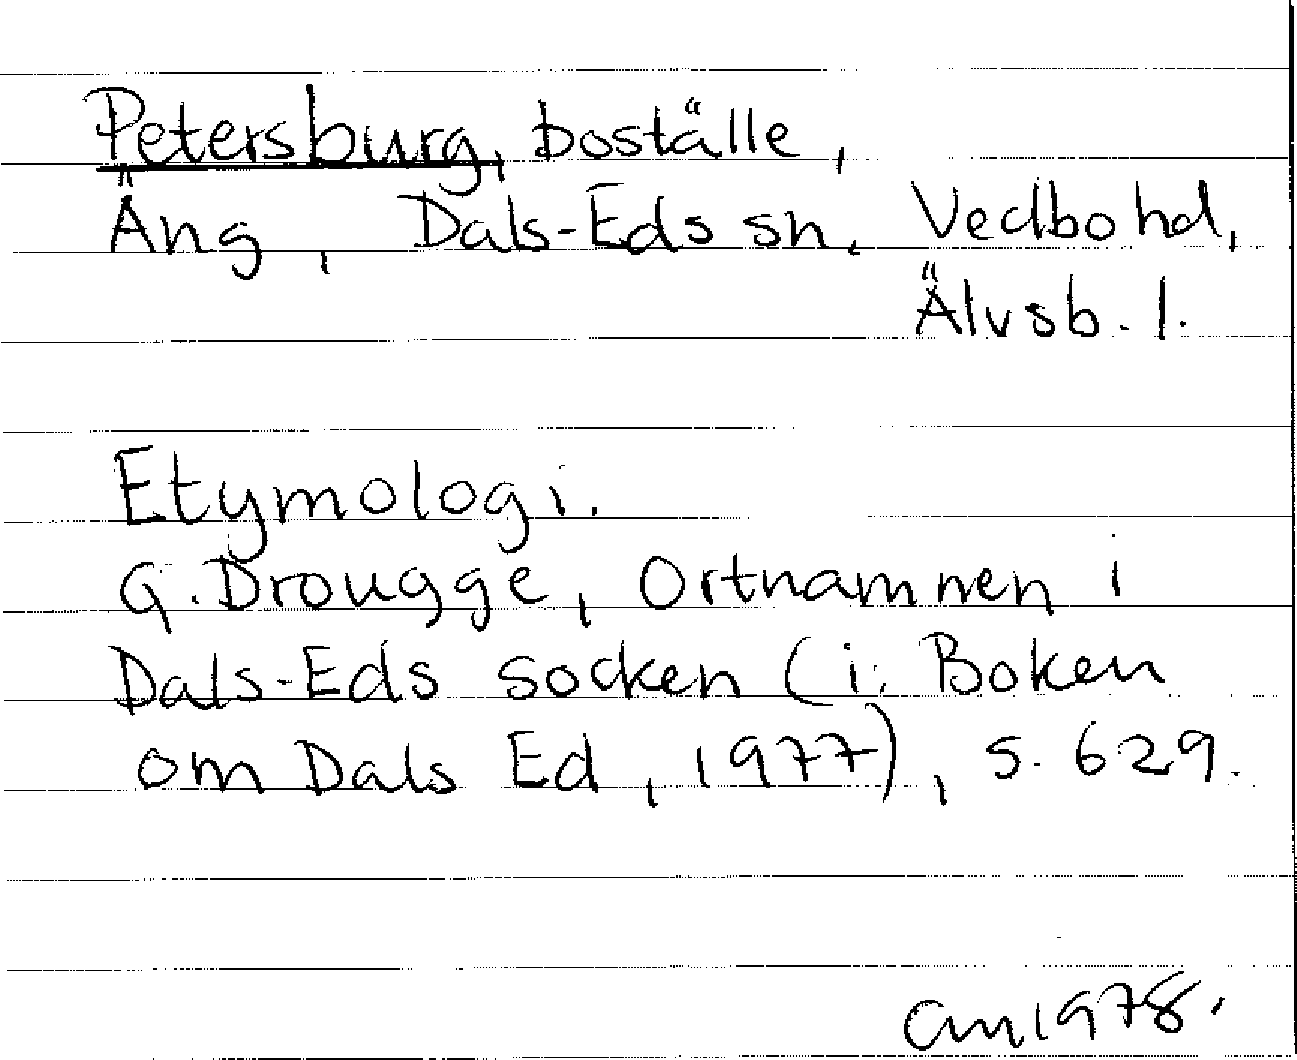 Petersburg, boställe,
Äng, Dals-Eds sn. Vedbo hd,
Älvsb. l.
Etymologi.
G. Drougge, Ortnamnen i
Dals-Eds socken (i: Boken
om Dals Ed, 1977), s. 629.
1978.